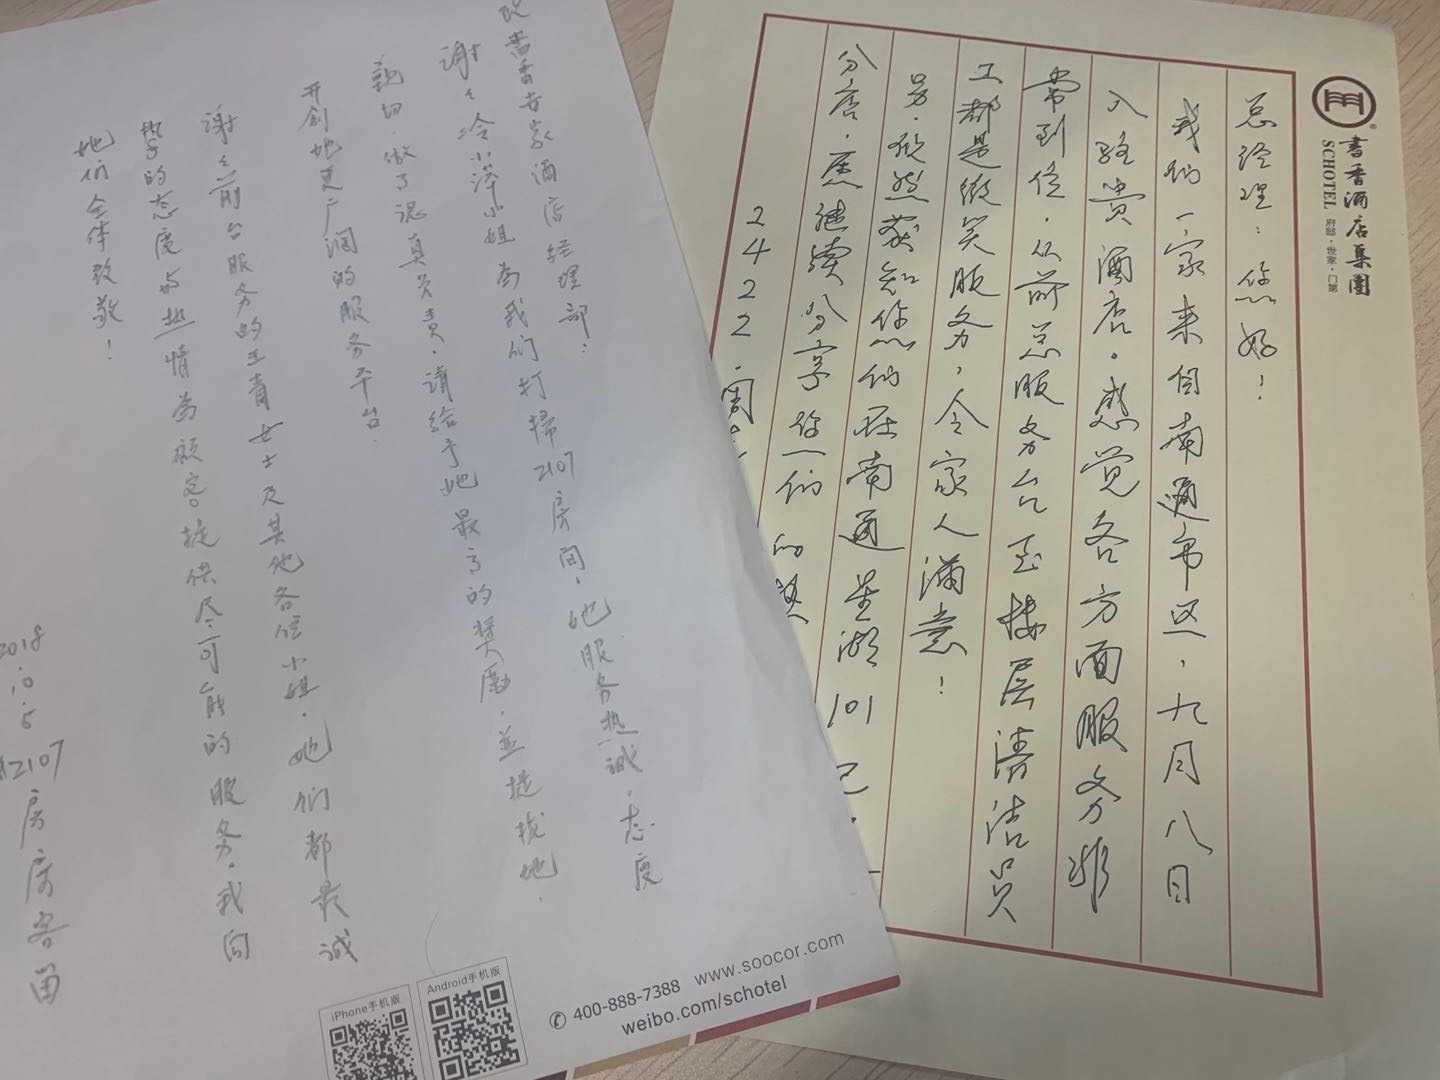 書香酒店集團
SCHOTEL
府邸·世家·门第
总经理：您好！
我们一家来自南通市区，九月八日
入驻贵酒店。感觉各方面服务非
常到位，从前总服务台至楼层清洁员
工都是微笑服务，令家人满意！
另，欣然获知您们在南通星湖101已
分店，愿继续分享您们的
2422·周
致書香世家酒店经理部：
谢谢冷小萍小姐为我们打掃2107房间，她服务热诚，态度
親切，做了认真负责，请给予她最高的奬勵，並提拔她，
开创她更广阔的服务平台，
谢谢前台服务的王青女士及其他各位小姐，她们都是诚
挚的态度与热情为顾客提供尽可能的服务，我向
她们全体致敬！
2018.10.5
2107房房客留
iPhone手机版
Android手机版
400-888-7388 www.soocor.com
weibo.com/schotel